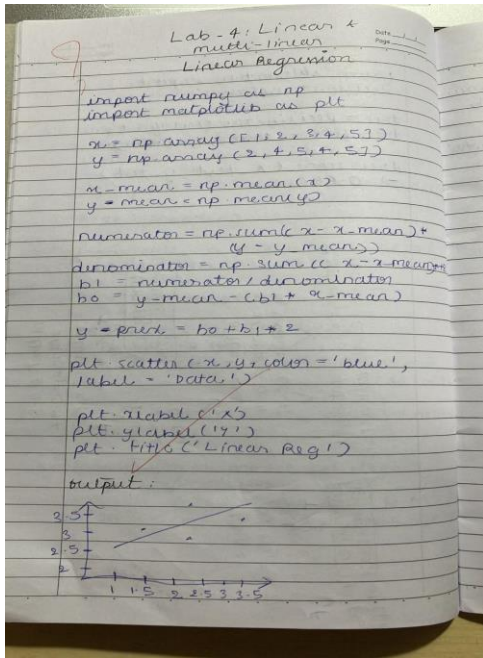 Lab - 4: Linear &
multi-linear
Date
Page
Linear Regression
import numpy as np
import matplotlib as plt
x = np.array([1, 2, 3, 4, 5])
y = np.array(2, 4, 5, 4, 5])
x-mean = np.mean(x)
y-mean = np.mean(y)
numerator = np.sum((x - x-mean)*
(y - y-mean))
denominator = np.sum((x - x-mean)**
b1 = numerator/denominator
b0 = y-mean - (b1 * x-mean)
y-pred = b0 + b1 * 2
plt.scatter(x, y, color = 'blue',
label = 'Data')
plt.xlabel('x')
plt.ylabel('y')
plt.title('Linear Reg')
output:
3.5
3
2.5
2
1 1.5 2 2.5 3 3.5